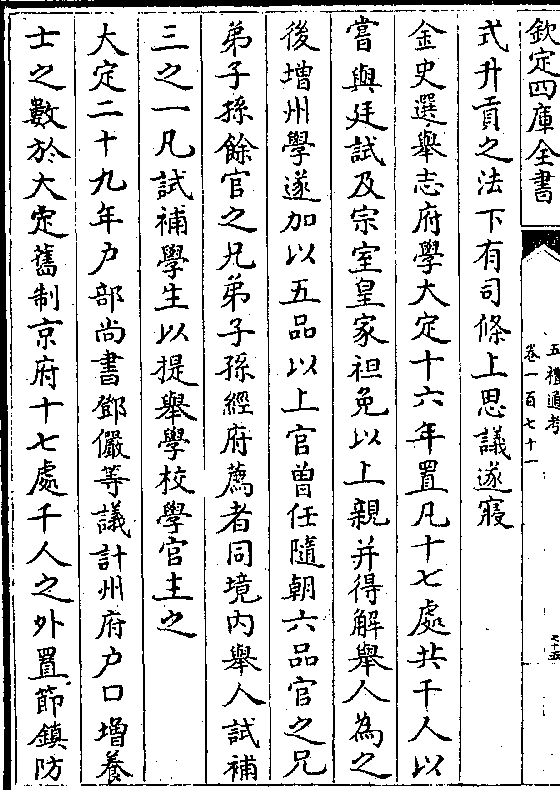 欽定四庫全書
五禮通考
卷一百七十一
式升貢之法下有司條上思議遂寢
金史選舉志府學大定十六年置凡十七處共千人以
嘗與廷試及宗室皇家袒免以上親并得解舉人為之
後增州學遂加以五品以上官曾任隨朝六品官之兄
弟子孫餘官之兄弟子孫經府薦者同境內舉人試補
三之一凡試補學生以提舉學校學官主之
大定二十九年户部尚書鄧儼等議計州府户口增養
士之數於大定舊制京府十七處千人之外置節鎮防